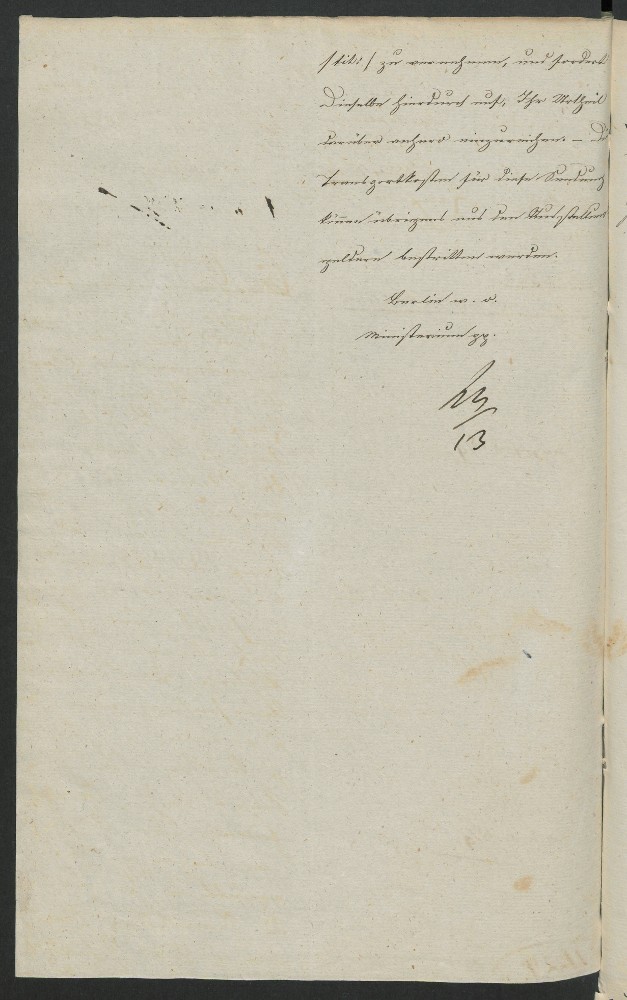 / tit: / zu vernehmen, und fordert
Dieselbe hierdurch auf, Ihr Urtheil
darüber anhero einzureichen. – Die
Transportkosten für diese Sendung
können übrigens aus den Ausstellungs
geldern bestritten werden.
Berlin w. o.
Ministerium pp.
13